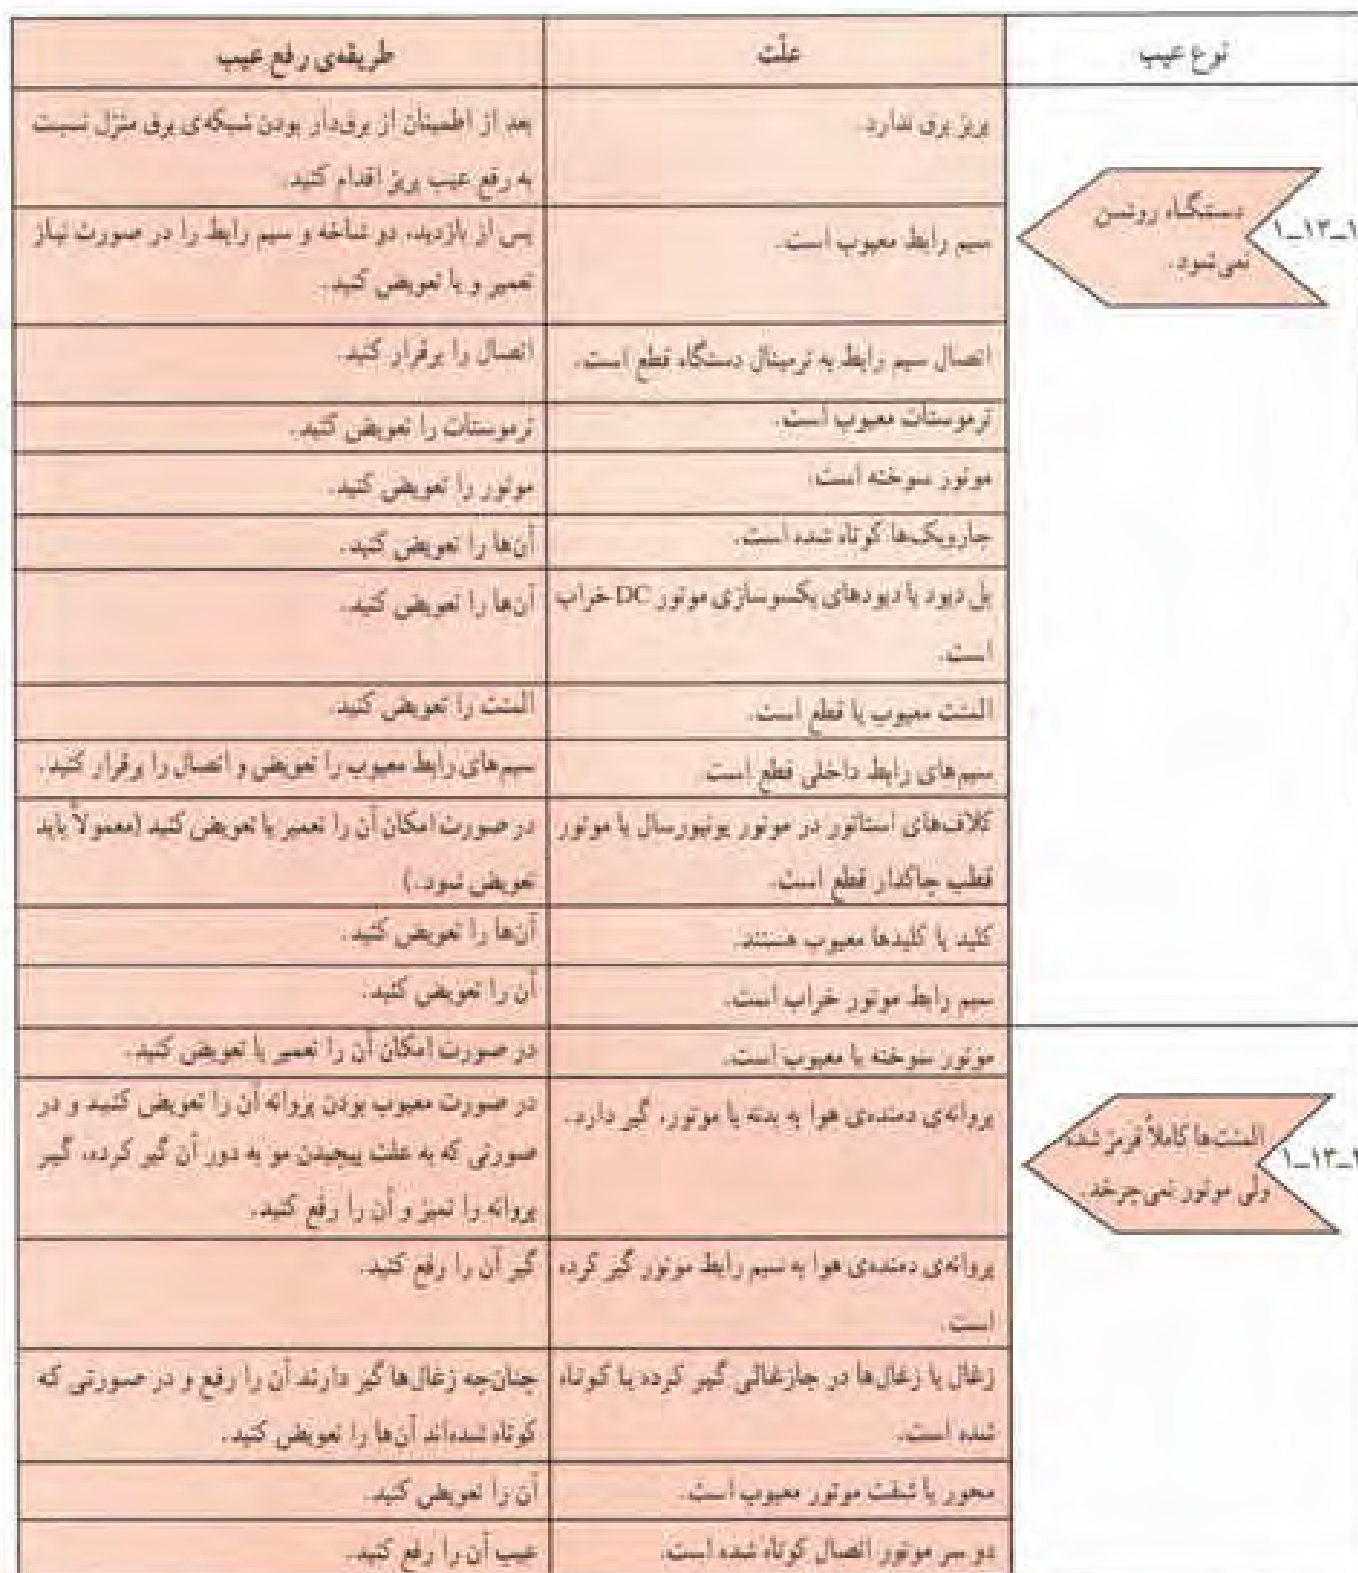 نوع عیب
علّت
طریقه‌ی رفع عیب
۱-۱۳-۱
دستگاه روشن
نمی‌شود.
پریز برق ندارد.
بعد از اطمینان از برق‌دار بودن شبکه‌ی برق منزل نسبت
به رفع عیب پریز اقدام کنید.
سیم رابط معیوب است.
پس از بازدید، دو شاخه و سیم رابط را در صورت نیاز
تعمیر و یا تعویض کنید.
اتصال سیم رابط به ترمینال دستگاه قطع است.
اتصال را برقرار کنید.
ترموستات معیوب است.
ترموستات را تعویض کنید.
موتور سوخته است.
موتور را تعویض کنید.
جاروبک‌ها کوتاه شده است.
آن‌ها را تعویض کنید.
پل دیود یا دیودهای یکسوسازی موتور DC خراب
است.
آن‌ها را تعویض کنید.
المنت معیوب یا قطع است.
المنت را تعویض کنید.
سیم‌های رابط داخلی قطع است.
سیم‌های رابط معیوب را تعویض و اتصال را برقرار کنید.
کلاف‌های استاتور در موتور یونیورسال یا موتور
قطب چاکدار قطع است.
در صورت امکان آن را تعمیر یا تعویض کنید (معمولاً باید
تعویض شود.)
کلید یا کلیدها معیوب هستند.
آن‌ها را تعویض کنید.
سیم رابط موتور خراب است.
آن را تعویض کنید.
۱-۱۳-۲
المنت‌ها کاملاً قرمز شده
ولی موتور نمی‌چرخد.
موتور سوخته یا معیوب است.
در صورت امکان آن را تعمیر یا تعویض کنید.
پروانه‌ی دمنده‌ی هوا به بدنه یا موتور، گیر دارد.
در صورت معیوب بودن پروانه آن را تعویض کنید و در
صورتی که به علت پیچیدن مو به دور آن گیر کرده، گیر
پروانه را تمیز و آن را رفع کنید.
پروانه‌ی دمنده‌ی هوا به سیم رابط موتور گیر کرده
است.
گیر آن را رفع کنید.
زغال یا زغال‌ها در جازغالی گیر کرده یا کوتاه
شده است.
چنان‌چه زغال‌ها گیر دارند آن را رفع و در صورتی که
کوتاه شده‌اند آن‌ها را تعویض کنید.
محور یا شفت موتور معیوب است.
آن را تعویض کنید.
دو سر موتور اتصال کوتاه شده است.
عیب آن را رفع کنید.